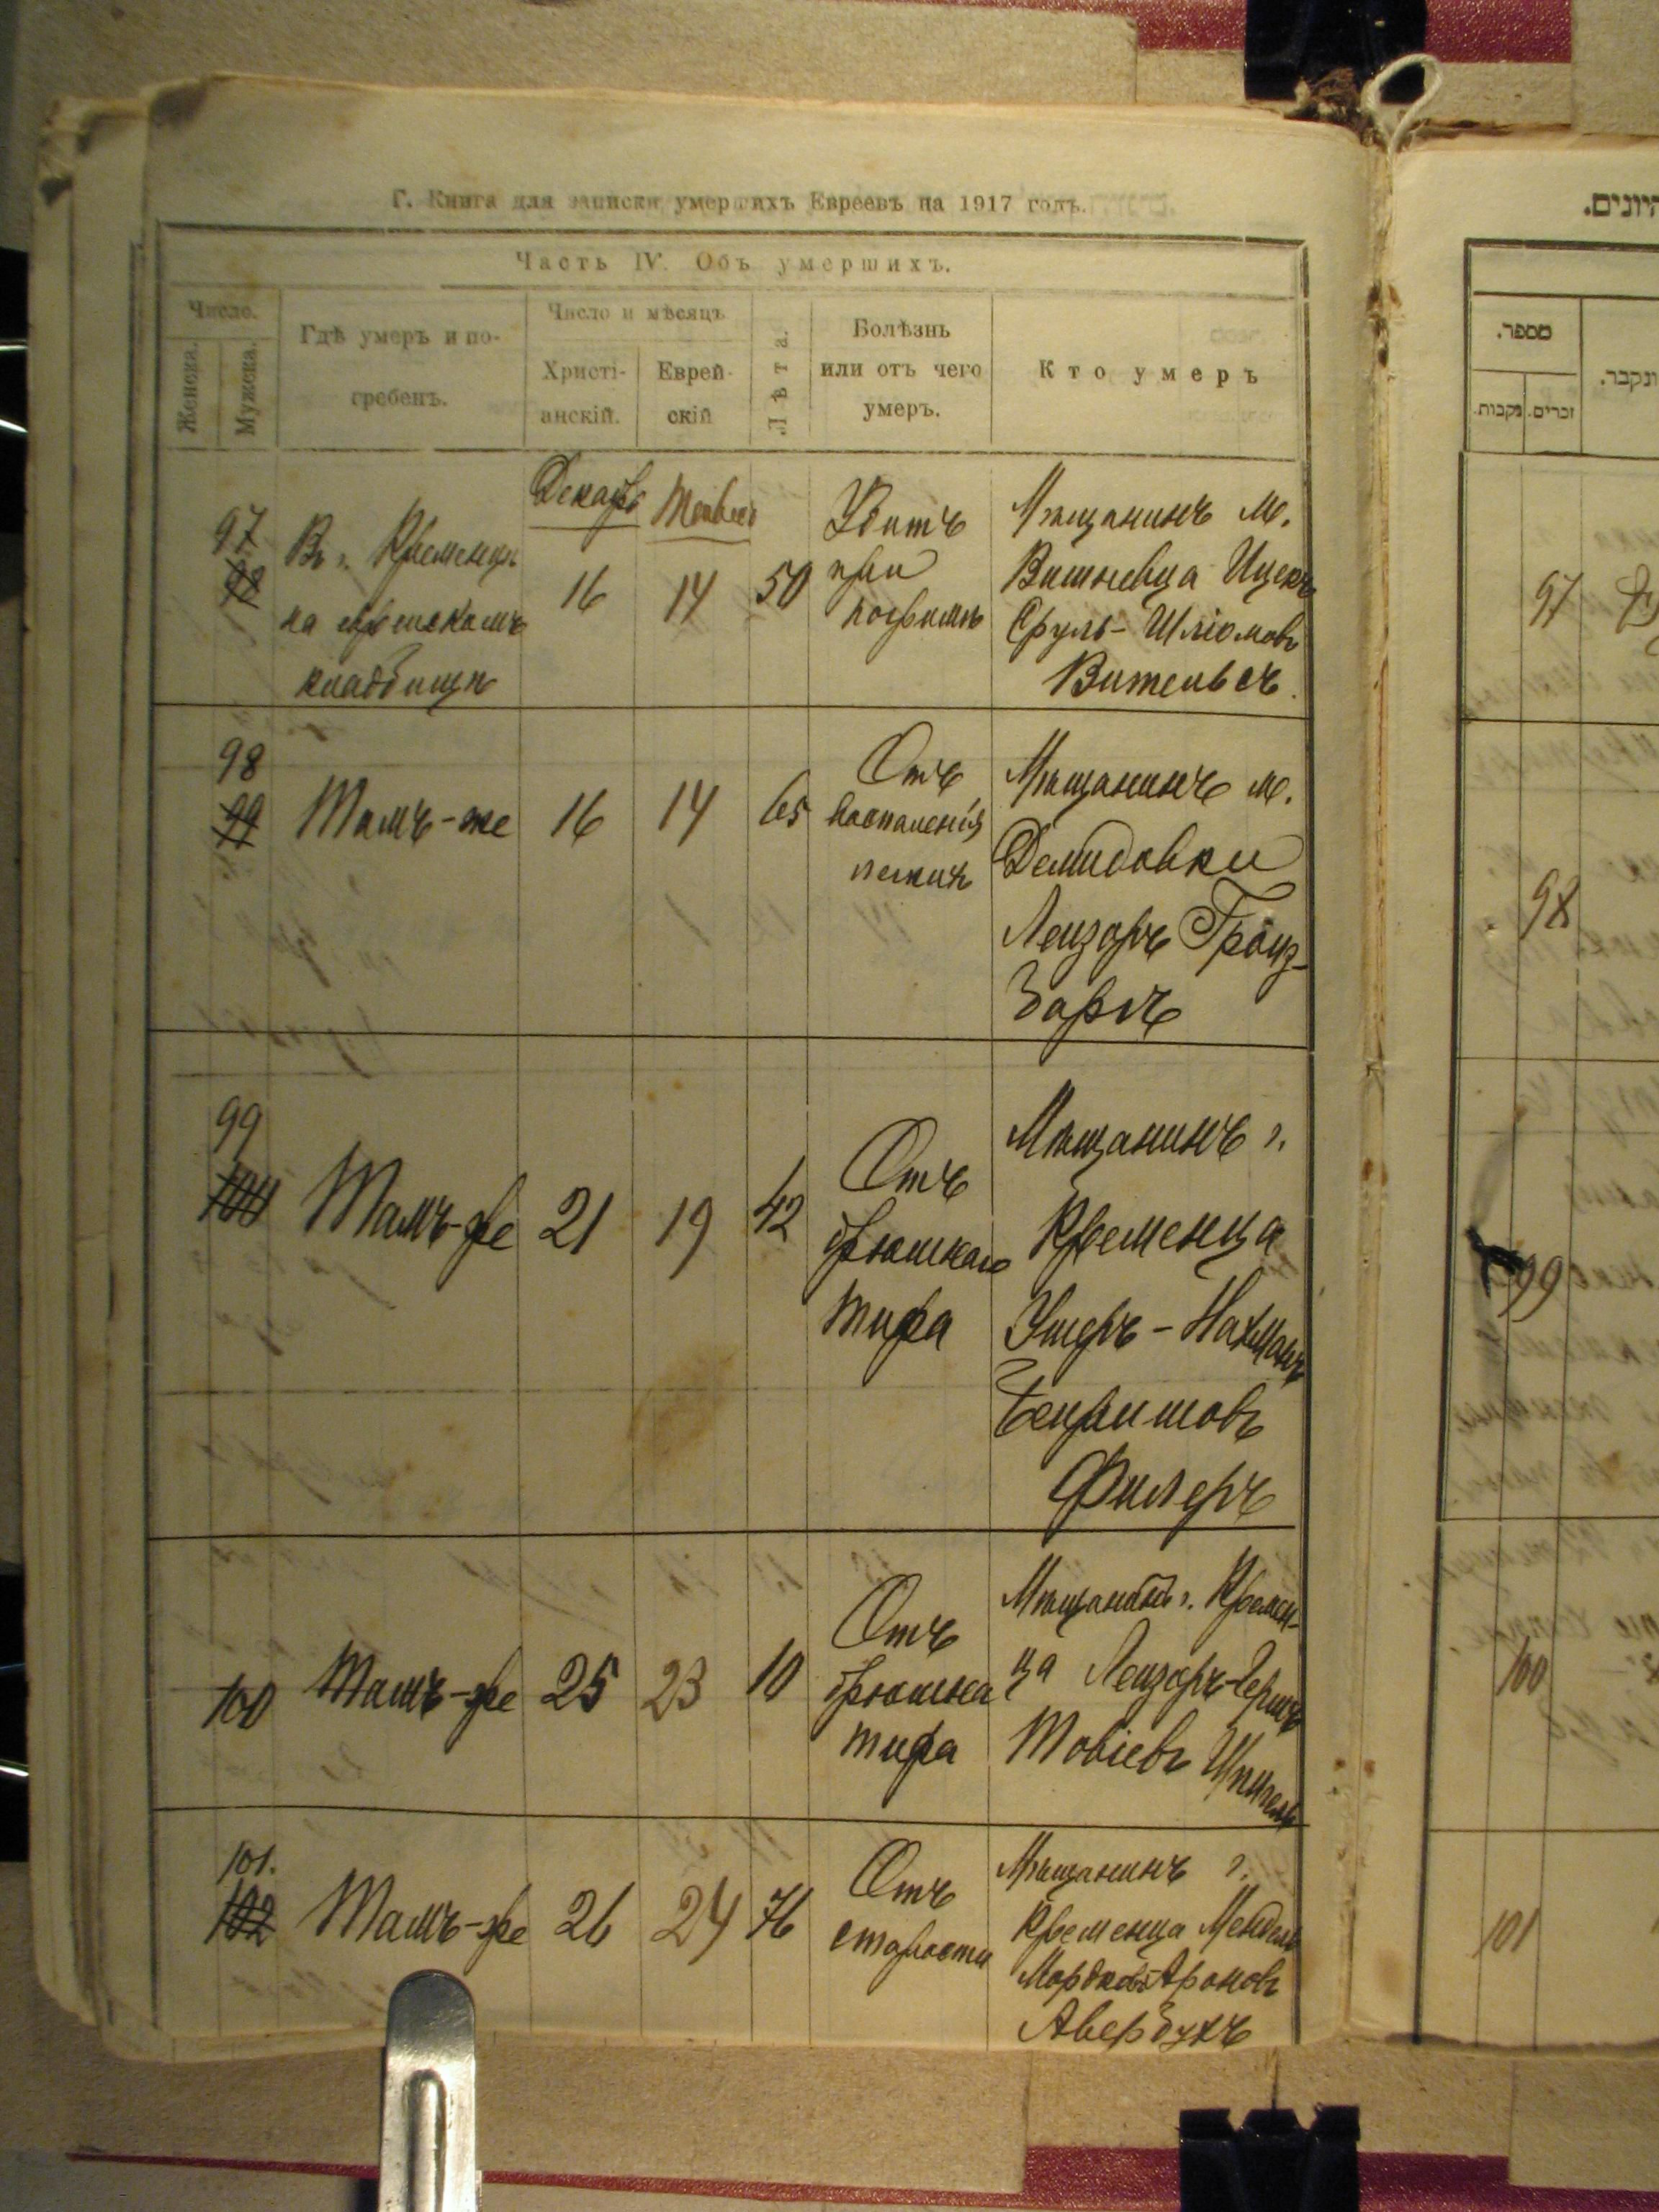 Г. Книга для записки умершихъ Евреевъ на 1917 годъ.
Часть IV. Объ умершихъ.
Число.
Женска.
Мужска.
Гдѣ умеръ и по-
гребенъ.
Число и мѣсяцъ
Христі-
анскій.
Еврей-
скій
Лѣта.
Болѣзнь
или отъ чего
умеръ.
Кто умеръ
Декабр
97
98
Въ г. Кременцѣ
на еврейскомъ
кладбищѣ
16
14
50
Убитъ
при
погромѣ
Мѣщанинъ м.
Вишневца Ицекъ
Сруль-Шліомовъ
Вительсъ.
98
99
Тамъ-же
16
14
65
Отъ
воспаленія
легкихъ
Мѣщанинъ м.
Демидовки
Лейзоръ Гройз-
баръ
99
100
Тамъ-же
21
19
42
Отъ
брюшнаго
тифа
Мѣщанинъ г.
Кременца
Ушеръ-Нахманъ
Фиглеръ
100
Тамъ-же
25
23
10
Отъ
брюшна
тифа
Мѣщанинъ г. Кремен-
ца Лейзоръ-Гершъ
Товіевъ Шпигель
101.
102
Тамъ-же
26
24
76
Отъ
старости
Мѣщанинъ г.
Кременца Мендель
Мордковъ Ароновъ
Авербухъ
היונים.
מספר.
נקבות.
זכרים.
ונקבר.
97
98
99
100
101